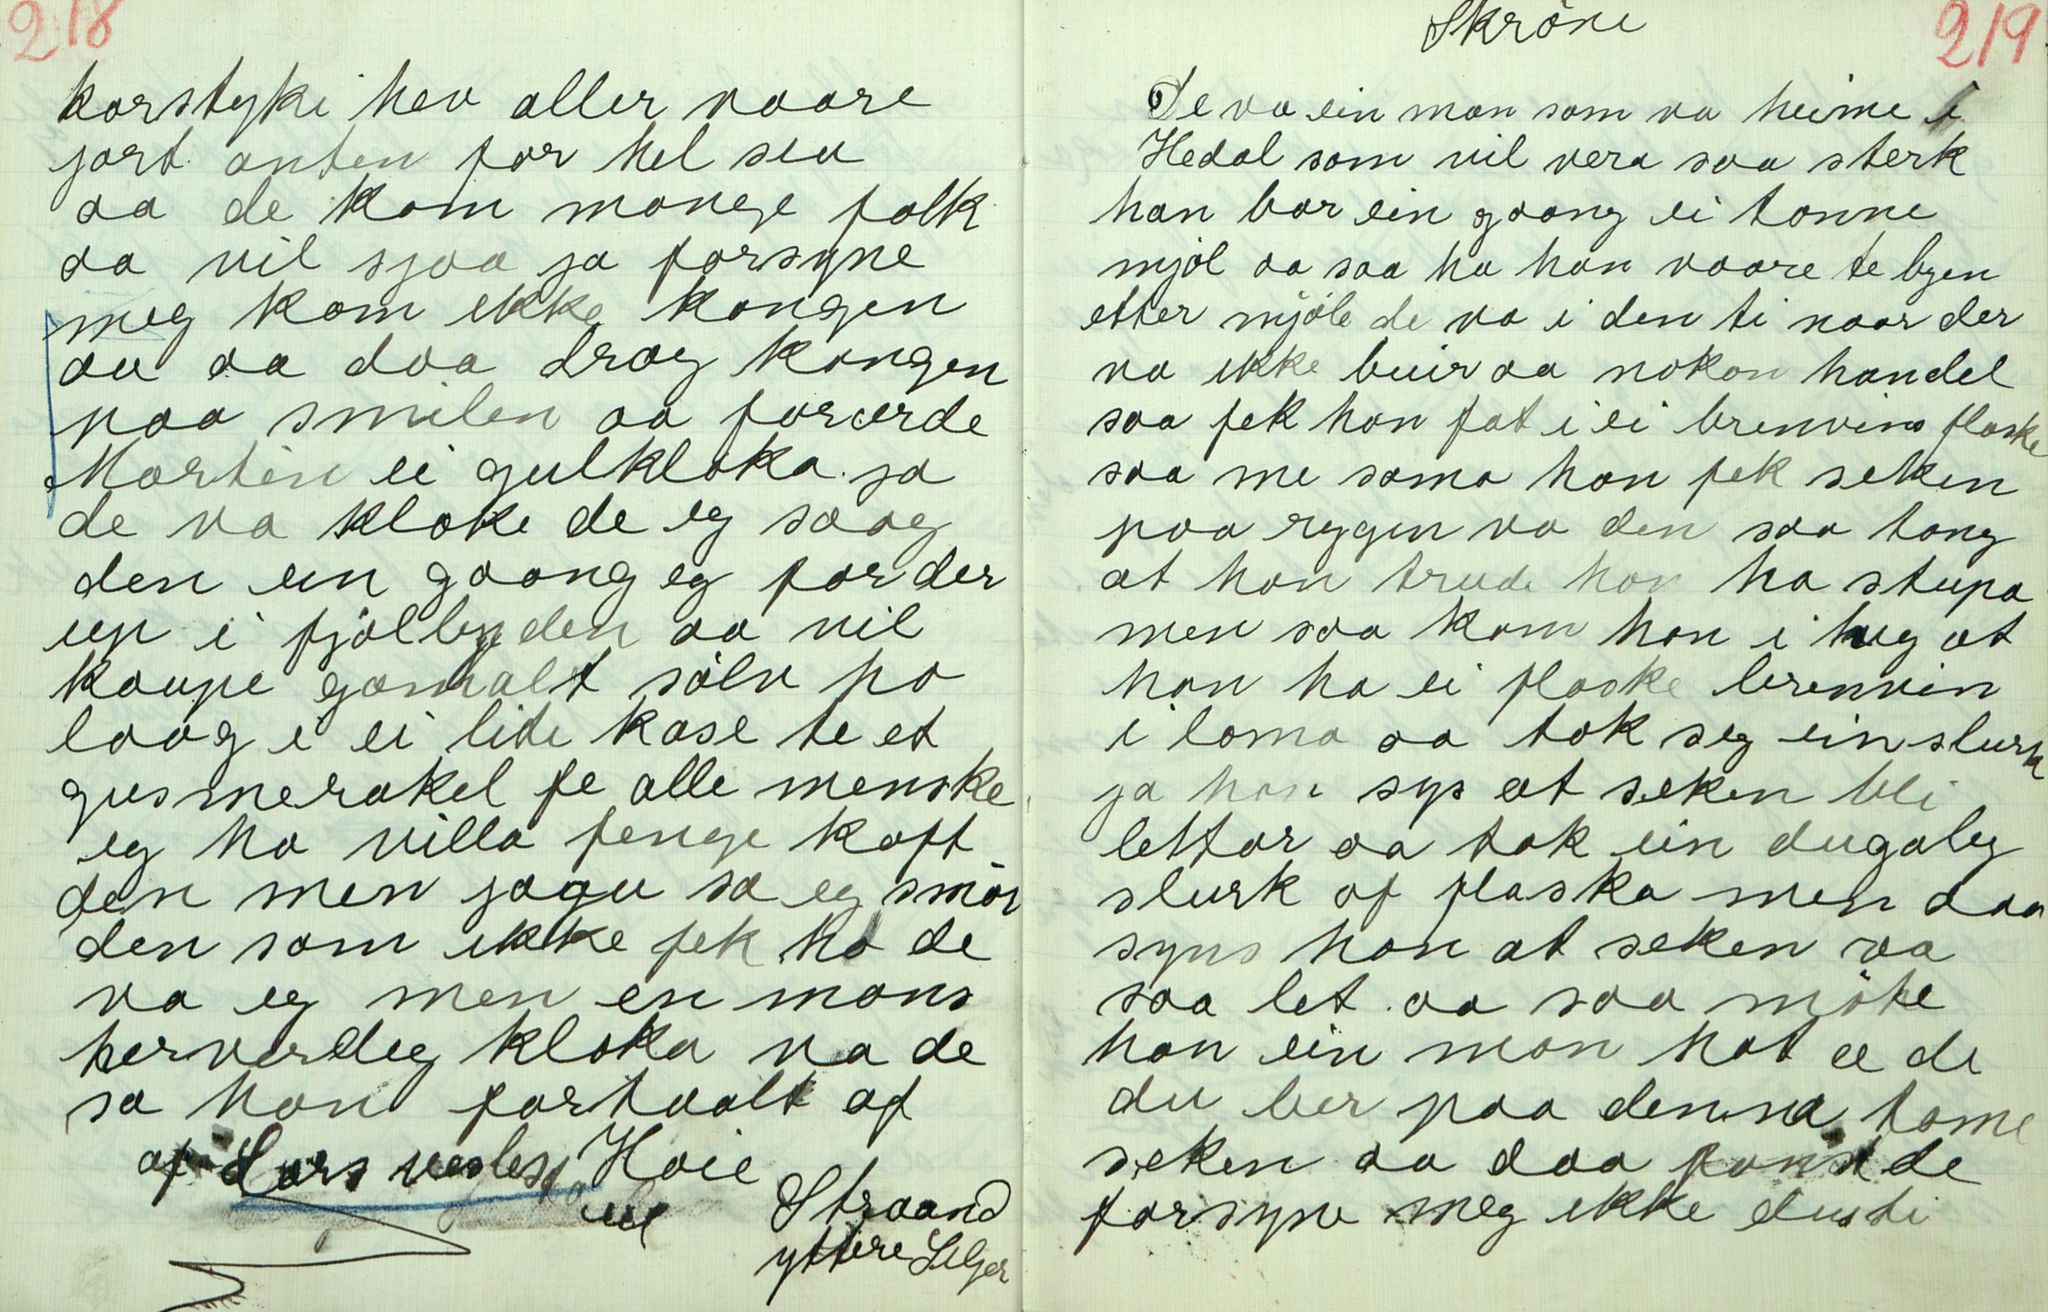 218
korstyki hev aller vaare
jort anten for hel seu
aa de kom mange folk
aa vil sjaa ja forsyne
meg kom ikke kongen
au aa daa drog kongen
paa smilen aa forærde
Morten ei gulkloka ja
de va kloke de eg saag
den ein goong eg for der
up i fjølbygden aa vil
koupe gamalt sølv ho
laag i ei liti kase te et
gusmerakel fe alle menske
eg ha villa fenge koft
den men jagu sa eg smør
den som ikke fek ho de
va eg men en mans
herverdeg kloka va de
sa han fortaalt af
af Lars Hoie
Straand
yttre Seljor
219
Skrøne
De va ein man som va heime i
Hedal som vil vera saa sterk
han bar ein goong ei tonne
mjøl aa saa ha han vaare te byen
etter mjøle de va i den ti naar der
va ikke buir aa nokon handel
saa fek han fat i ei brenvins flaske
saa me sama han fek seken
paa rygen va den saa tong
at han trude han ha stupa
men saa kom han i hug at
han ha ei flaske brenvin
i loma aa tok seg ein slurk
ja han sys at seken bli
lettar aa tok ein dugaleg
slurk af flaska men daa
syns han at seken va
saa let aa saa møte
han ein man hot æ de
du ber paa denna tome
seken aa daa fanst de
forsyne meg ikke dusti